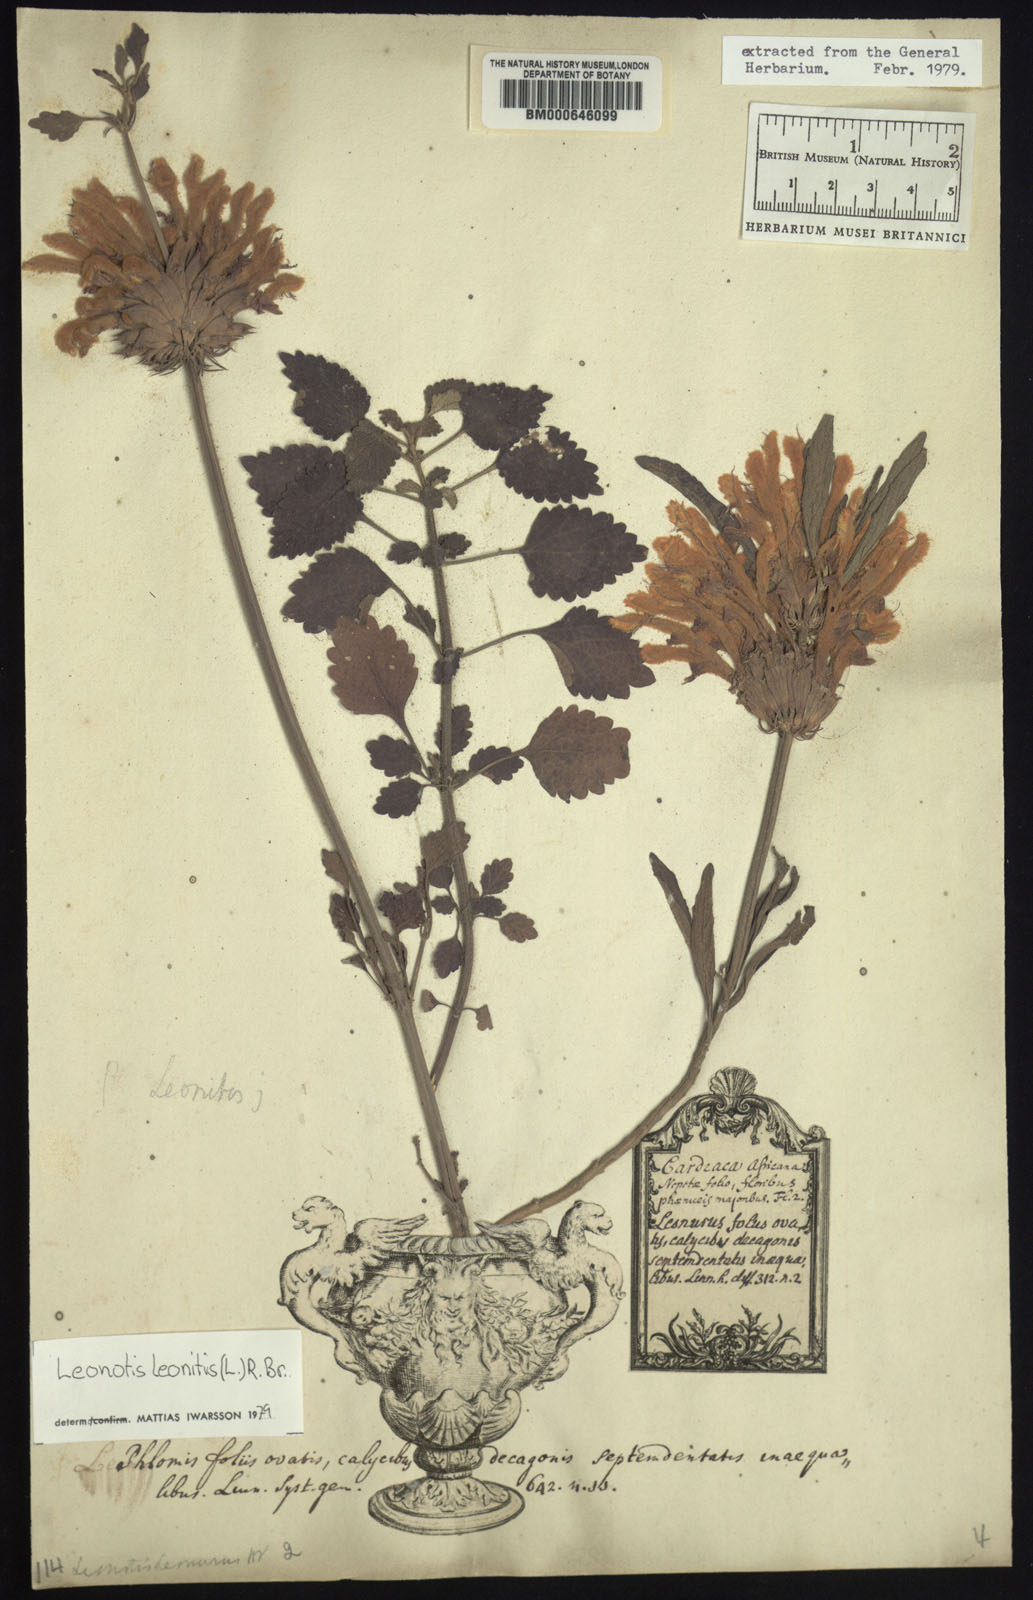 extracted from the General
Herbarium. Febr. 1979.
THE NATURAL HISTORY MUSEUM, LONDON
DEPARTMENT OF BOTANY
BM000646099
1 2
BRITISH MUSEUM (NATURAL HISTORY)
1 2 3 4 5
HERBARIUM MUSEI BRITANNICI
Leonitis
Cardiaca Africana
Nepetæ folio, floribus
phœniceis majoribus. H.2.
Leonurus foliis ova,,
tis, calycibus decagonis
septemdentatis inæqua,,
libus. Linn. h. cliff. 312. n. 2
Leonotis leonitis (L.) R. Br.
determ./confirm. MATTIAS IWARSSON 1979
Phlomis foliis ovatis, calycibus decagonis septemdentatis inaequa,,
libus. Linn. Syst. gen. 642. n. 10.
114 Leonotis Leonurus Br 2
4